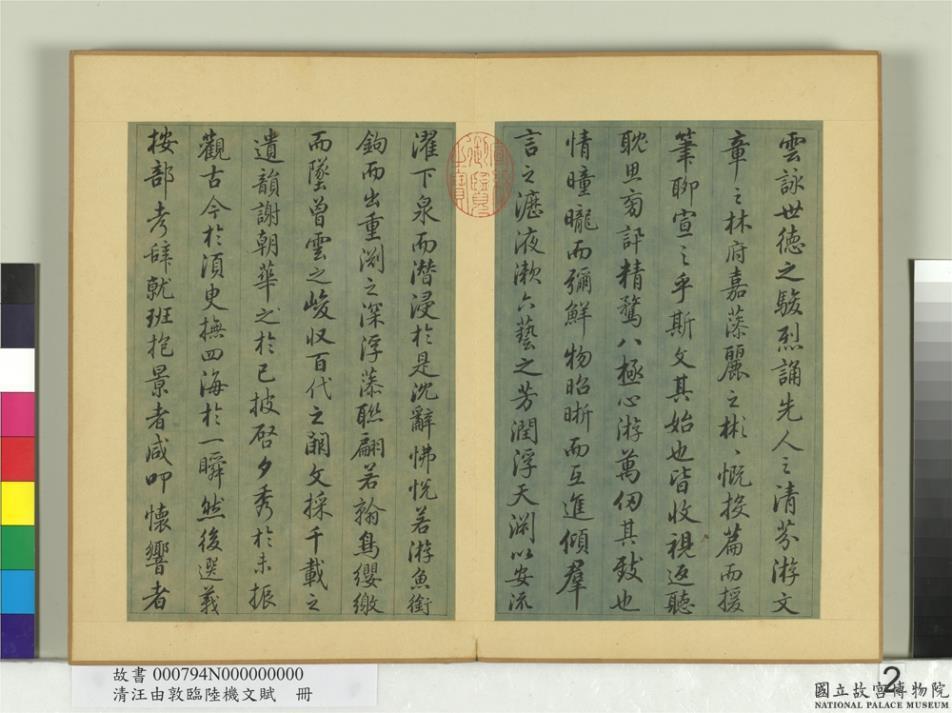 雲詠世德之駿烈誦先人之清芬游文
章之林府嘉藻麗之彬〻慨投篇而援
筆聊宣之乎斯文其始也皆收視返聽
耽思旁訊精騖八極心游萬仞其致也
情曈曨而彌鮮物昭晰而互進傾羣
言之瀝液漱六藝之芳潤浮天淵以安流
濯下泉而潛浸於是沈辭怫悅若游魚銜
鉤而出重淵之深浮藻聯翩若翰鳥纓繳
而墜曾雲之峻収百代之闕文採千載之
遺韻謝朝華之於已披啓夕秀於未振
觀古今於須臾撫四海於一瞬然後選義
按部考辭就班抱景者咸叩懷響者
故書 000794N000000000
清汪由敦臨陸機文賦 冊
2
國立故宮博物院
NATIONAL PALACE MUSEUM